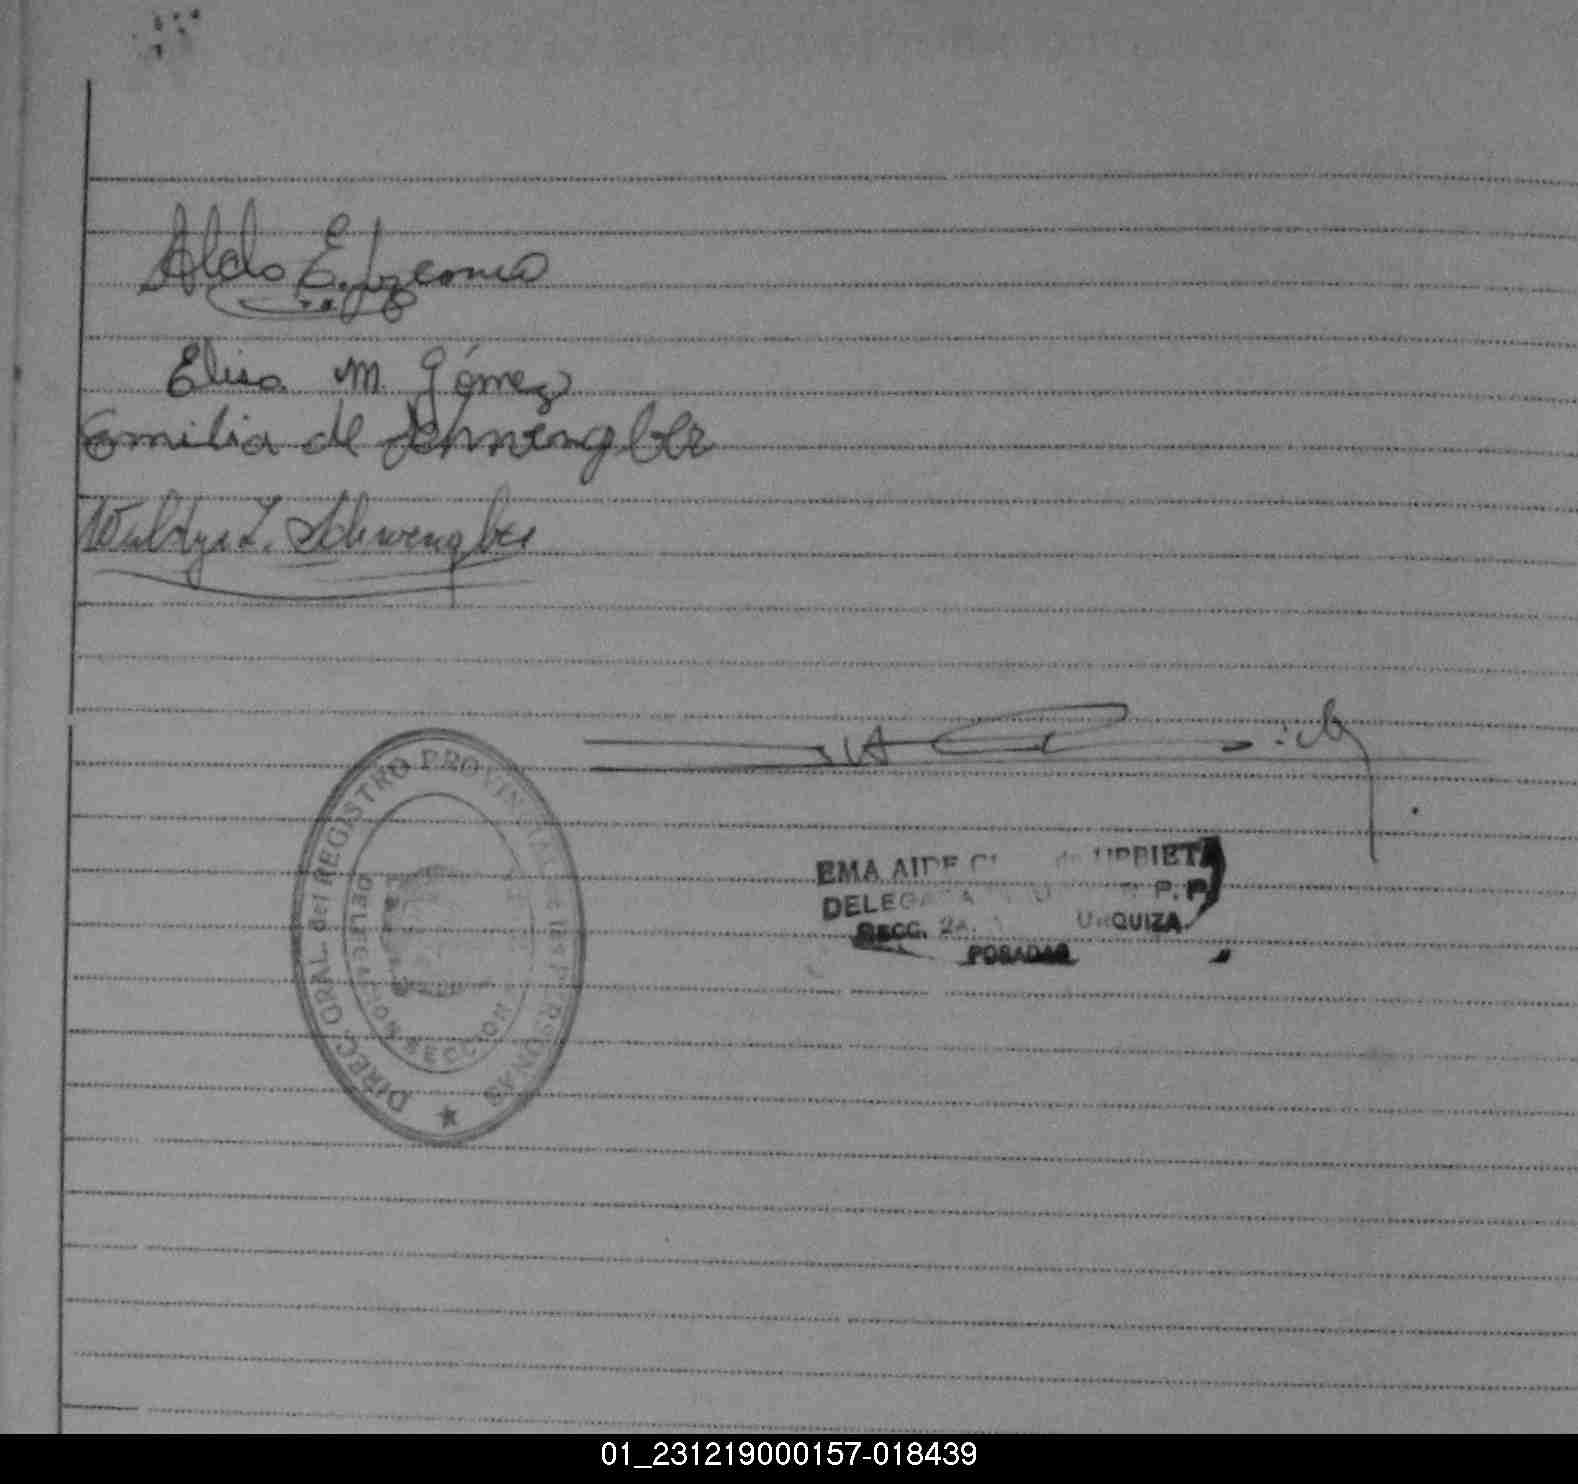 Aldo E. Lezcano
Elisa M. Gómez
Emilia de Schwengber
Waldys L. Schwengber
DIREC. GRAL. del REGISTRO PROVINCIAL de las PERSONAS
DELEGACION
SECCION
EMA AIDE URRIETA
DELEGADA P. P.
SECC. 2A. URQUIZA
POSADAS
01_231219000157-018439